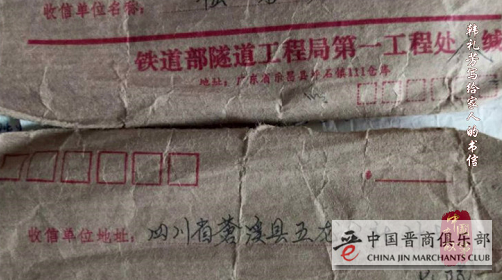 收信单位名称：
铁道部隧道工程局第一工程处 缄
地址：广东省乐昌县坪石镇111仓库
收信单位地址：四川省蓬溪县五龙
韩礼芳写给家人的书信
中国晋商俱乐部
CHINA JIN MERCHANTS CLUB